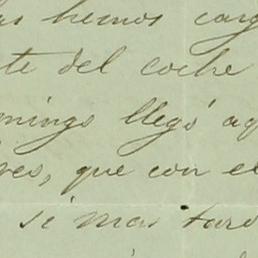 as hemos carg
te del coche
mings llegó aq
ves, que con el
si mas tard